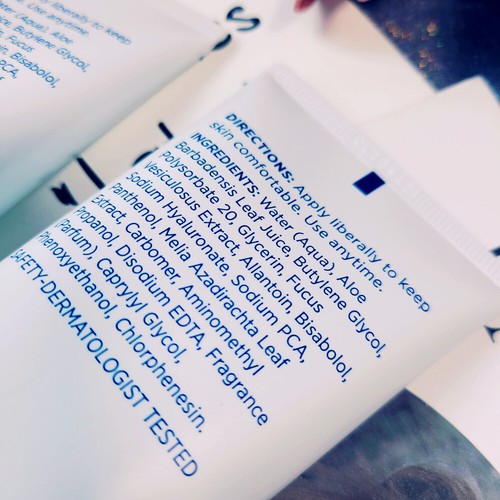 y liberally to keep
Use anytime.
(Aqua), Aloe
Butylene Glycol,
Fucus
Bisabolol,
PCA,
DIRECTIONS: Apply liberally to keep
skin comfortable. Use anytime.
INGREDIENTS: Water (Aqua), Aloe
Barbadensis Leaf Juice, Butylene Glycol,
Polysorbate 20, Glycerin, Fucus
Vesiculosus Extract, Allantoin, Bisabolol,
Sodium Hyaluronate, Sodium PCA,
Panthenol, Melia Azadirachta Leaf
Extract, Carbomer, Aminomethyl
Propanol, Disodium EDTA, Fragrance
(Parfum), Caprylyl Glycol,
Phenoxyethanol, Chlorphenesin.
SAFETY-DERMATOLOGIST TESTED